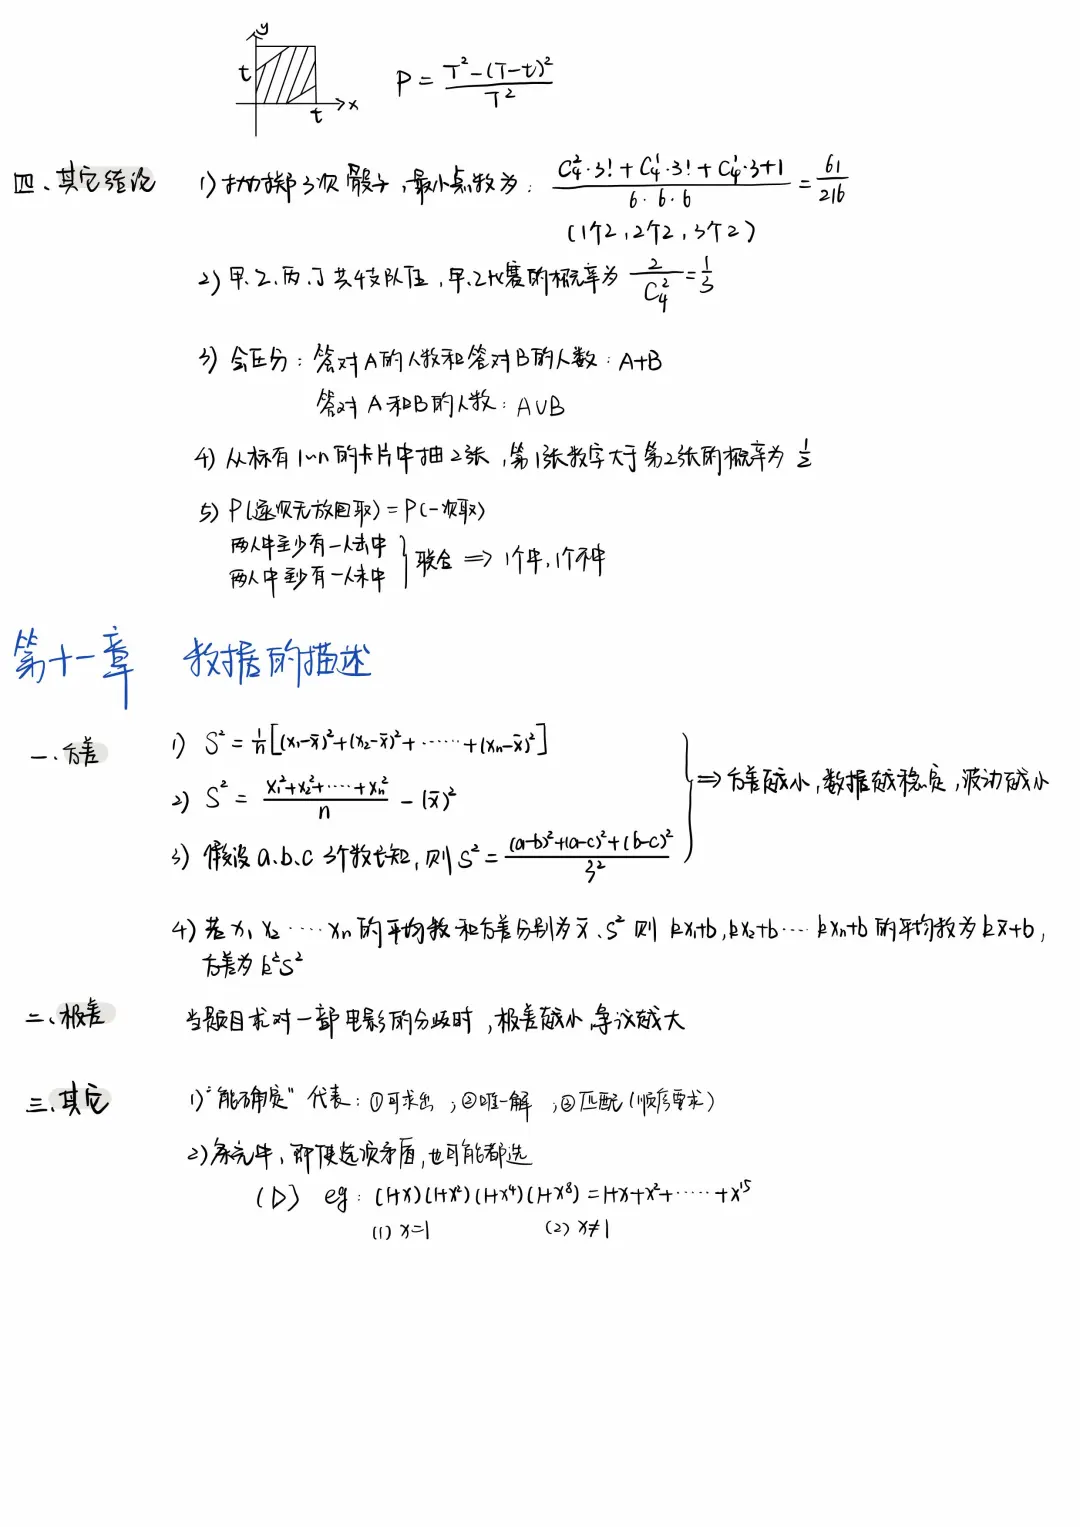 y
t
t
x
P = (T²-(T-t)²)/T²
四、其它结论
1) 抛掷3次骰子，最小点数为： (C₄²·3!+C₄¹·3!+C₄¹·3+1)/(6·6·6) = 61/216
(1个2，2个2，3个2)
2) 甲、乙、丙、丁共4支队伍，甲乙比赛的概率为 2/C₄² = 1/3
3) 会区分：答对A的人数和答对B的人数：A+B
答对A和B的人数：A∪B
4) 从标有1~n的卡片中抽2张，第1张数字大于第2张的概率为 1/2
5) P(逐次无放回取)=P(一次取)
两人中至少有一人击中
两人中至少有一人未中
联合 ⇒ 1个中，1个不中
第十一章 数据的描述
一、方差
1) S² = 1/n[(x₁-x̄)²+(x₂-x̄)²+……+(xₙ-x̄)²]
2) S² = (x₁²+x₂²+…+xₙ²)/n - (x̄)²
⇒ 方差越小，数据越稳定，波动越小
3) 假设a、b、c 3个数已知，则S² = ((a-b)²+(a-c)²+(b-c)²)/3²
4) 若x₁ x₂ …… xₙ的平均数和方差分别为x̄、S² 则 kx₁+b, kx₂+b…… kxₙ+b的平均数为kx̄+b，
方差为k²S²
二、极差
当题目求对一部电影的分歧时，极差越小，争议越大
三、其它
1) "能确定" 代表：①可求出；②唯一解；③匹配(顺序要求)
2) 条充中，即使选项矛盾，也可能都选
(D) eg：(1+x)(1+x²)(1+x⁴)(1+x⁸)=1+x+x²+……+x¹⁵
(1) x=1 (2) x≠1